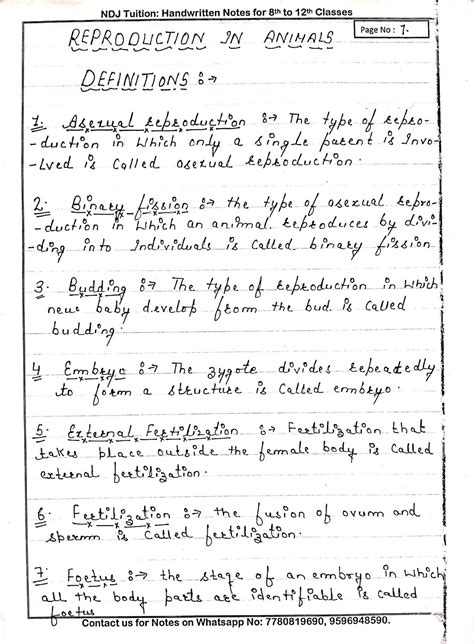 NDJ Tuition: Handwritten Notes for 8th to 12th Classes
Page No : 1.
REPRODUCTION IN ANIMALS
DEFINITIONS :->
1. Asexual reproduction :-> The type of repro-
-duction in which only a single parent is Invo-
-lved is called asexual reproduction.
2. Binary fission :-> the type of asexual repro-
-duction in which an animal reproduces by divi-
-ding into Individuals is called binary fission
3. Budding :-> The type of reproduction in which
new baby develop from the bud is called
budding.
4 Embryo :-> The zygote divides repeatedly
to form a structure is called embryo.
5. External Fertilization :-> Fertilization that
takes place outside the female body is called
external fertilization.
6. Fertilization :-> the fusion of ovum and
sperm is called fertilization.
7. Foetus :-> the stage of an embryo in which
all the body parts are identifiable is called
foetus
Contact us for Notes on Whatsapp No: 7780819690, 9596948590.